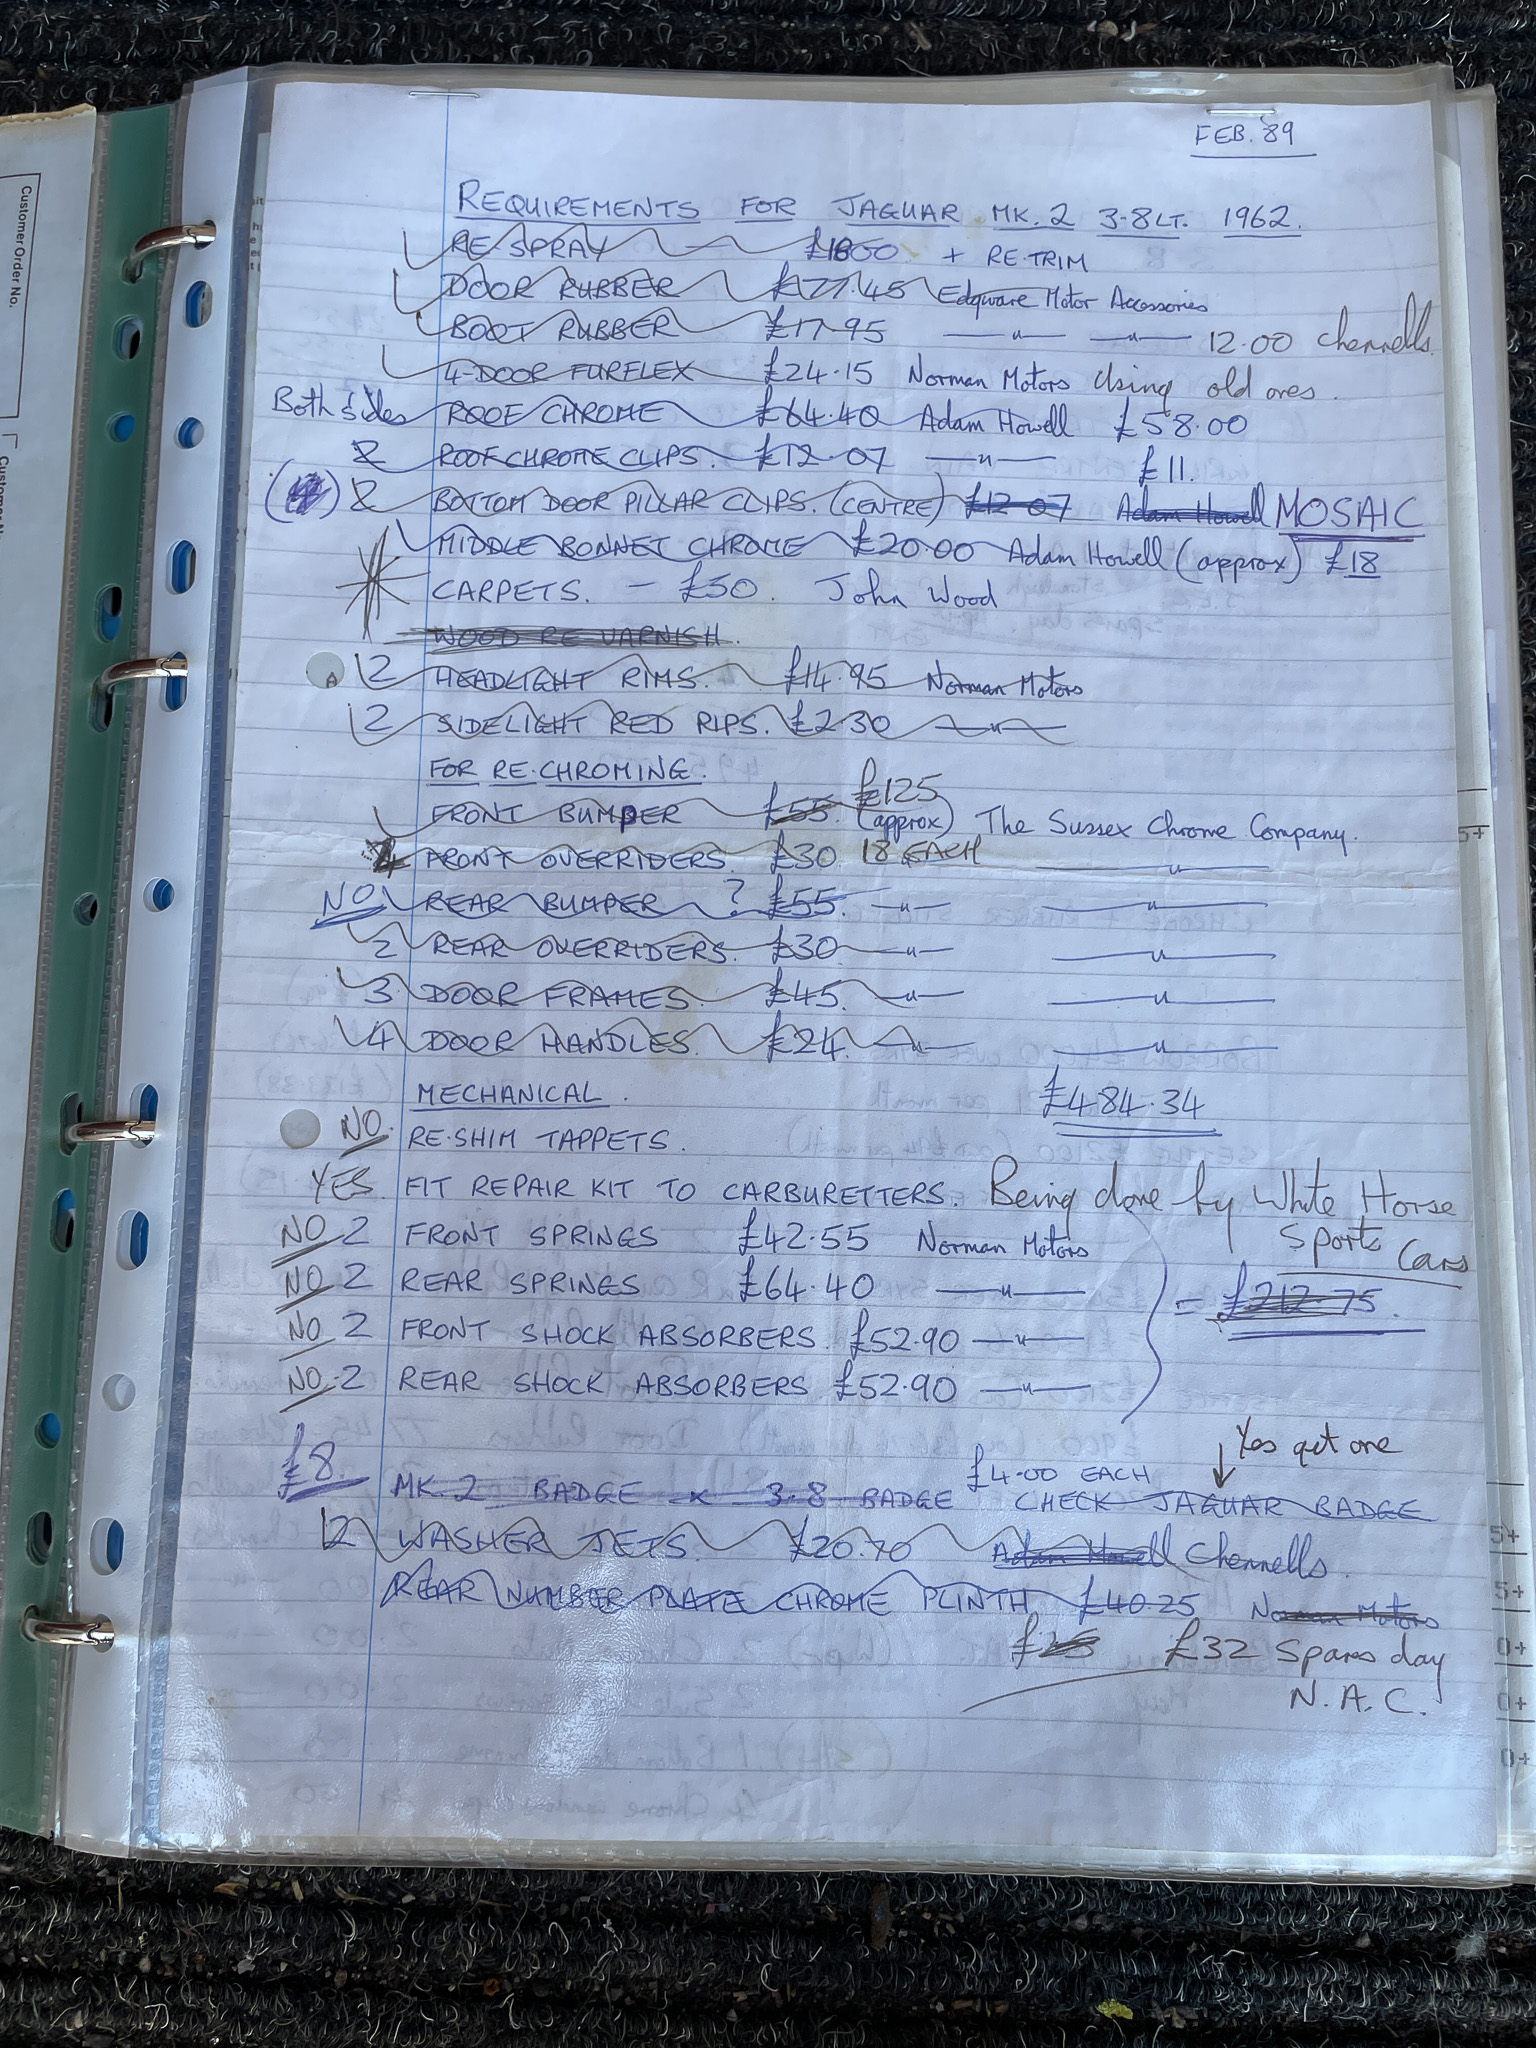 FEB. 89
REQUIREMENTS FOR JAGUAR MK. 2 3.8LT. 1962.
RE SPRAY — £1800 + RE-TRIM
DOOR RUBBER £77.45 Edgware Motor Accessories
BOOT RUBBER £17.95 —"— —"— 12.00 Chennells.
4-DOOR FURFLEX £24.15 Norman Motors Using old ones.
Both sides ROOF CHROME £64.40 Adam Howell £58.00
2 ROOF CHROME CLIPS. £12.07 —"— £11.
(4) 2 BOTTOM DOOR PILLAR CLIPS. (CENTRE) £12-07 Adam Howell MOSAIC
MIDDLE BONNET CHROME £20.00 Adam Howell (approx) £18
CARPETS. — £50. John Wood
WOOD RE VARNISH.
2 HEADLIGHT RIMS. £14.95 Norman Motors
2 SIDELIGHT RED RIPS. £2.30 —"—
FOR RE-CHROMING.
£125
FRONT BUMPER £55. (approx) The Sussex Chrome Company.
4 FRONT OVERRIDERS £30 18 EACH —"—
NO REAR BUMPER ? £55. —"— —"—
2 REAR OVERRIDERS. £30. —"— —"—
3 DOOR FRAMES. £45. —"— —"—
4 DOOR HANDLES. £24. —"— —"—
MECHANICAL. £484.34
NO. RE-SHIM TAPPETS.
YES. FIT REPAIR KIT TO CARBURETTERS. Being done by White Horse
Sports Cars
NO 2 FRONT SPRINGS £42.55 Norman Motors
NO 2 REAR SPRINGS £64.40 —"— = £212.75.
NO 2 FRONT SHOCK ABSORBERS. £52.90 —"—
NO. 2 REAR SHOCK ABSORBERS £52.90 —"—
Yes get one
£8. MK. 2 BADGE x 3.8 BADGE £4.00 EACH CHECK JAGUAR BADGE
2 WASHER JETS. £20.70 Adam Howell Chennells.
REAR NUMBER PLATE CHROME PLINTH £40.25 Norman Motors
£25 £32 Spares day
N.A.C.
Customer Order No.
5+
5+
5+
0+
0+
0+